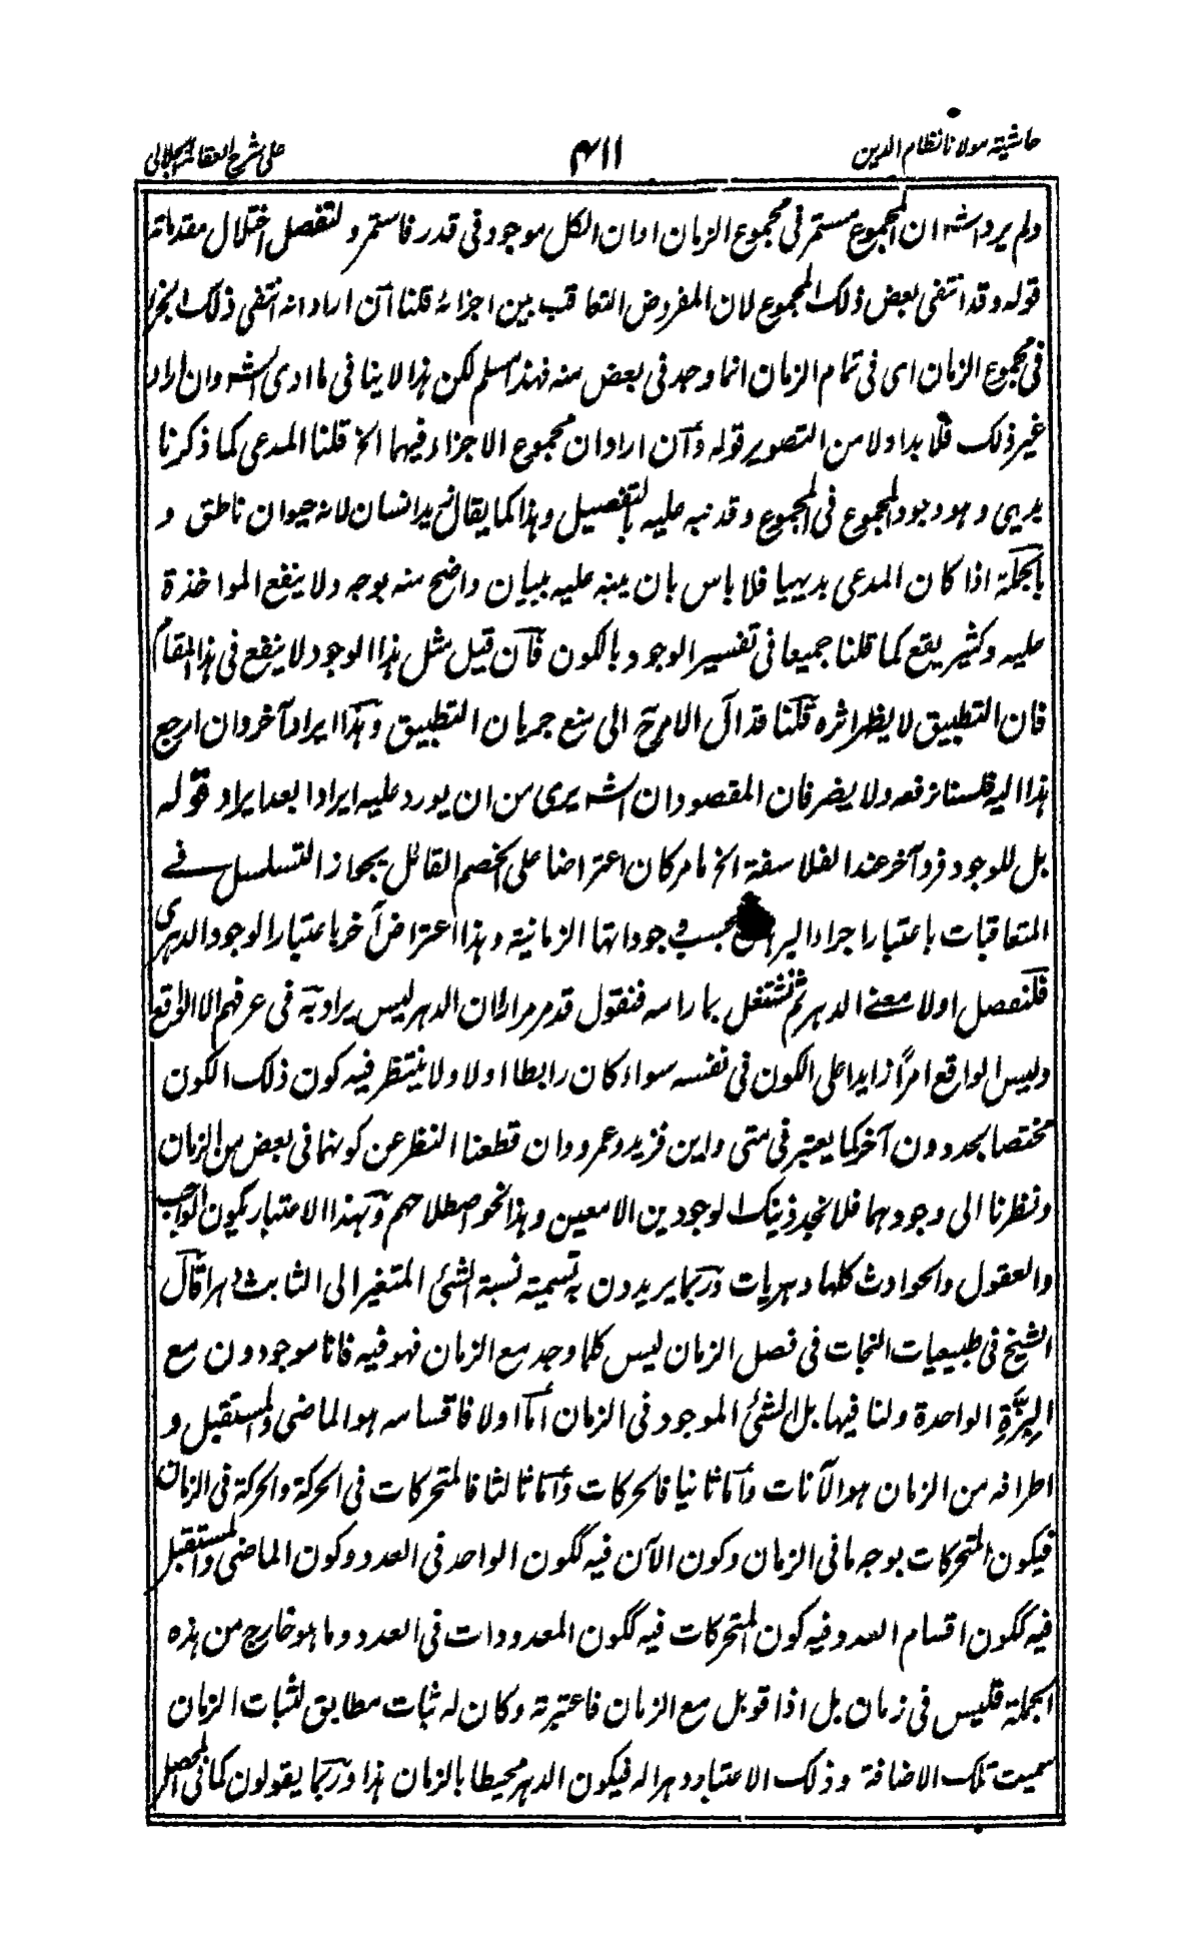 حاشيته مولانا نظام الدين
۴۱۱
على شرح العقائد الجلالى
ولم يرد انش ان المجموع مستمر فى مجموع الزمان اوان الكل موجود فى قدر فاستمر ولتفصل اختلال مقدماته
قوله وقد انتفى بعض ذلك المجموع لان المفروض التعاقب بين اجزائه قلنا ان اراد انه انتفى ذلك الجزء
فى مجموع الزمان اى فى تمام الزمان انما وجد فى بعض منه فهذا مسلم لكن هذا لا ينافى ما ادى الش وان اراد
غير ذلك فلا بد اولا من التصوير قوله وان اراد ان مجموع الاجزاء فيهما الخ قلنا المدعى كما ذكرنا
بديهى وهو وجود المجموع فى المجموع وقد نبه عليه بالتفصيل وهذا كما يقال زيد انسان لانه حيوان ناطق و
بالجملة اذا كان المدعى بديهيا فلا باس بان ينبه عليه ببيان واضح منه بوجه ولا ينفع المواخذة
عليه وكثير يقع كما قلنا جميعا فى تفسير الوجود بالكون فان قيل مثل هذا الوجود لا ينفع فى هذا المقام
فان التطبيق لا يظهر اثره قلنا قد آل الامر ح الى منع جريان التطبيق وهذا ايراد آخر وان ارجع
هذا اليه فلسنا نرفعه ولا يضر فان المقصود ان الش برى من ان يورد عليه ايرادا بعد ايراد قوله
بل للوجود فرد آخر عند الفلاسفة الخ ما مر كان اعتراضا على الخصم القائل بجواز التسلسل فے
المتعاقبات باعتبار اجراء البراهين بحسب وجوداتها الزمانية وهذا اعتراض آخر باعتبار الوجود الدهرى
فلنفصل اولا معنے الدهر ثم نشتغل بما رامه فنقول قد مر مرارا ان الدهر ليس يراد به فى عرفهم الا الواقع
وليس الواقع امرًا زايدا على الكون فى نفسه سواء كان رابطا اولا ولا ينتظر فيه كون ذلك الكون
مختصا بحد دون آخر كما يعتبر فى متى واين فزيد وعمرو وان قطعنا النظر عن كونهما فى بعض من الزمان
ونظرنا الى وجودهما فلا نجد ذينك الوجودين الا معين وهذا نحو اصطلاحهم وبهذا الاعتبار يكون الواجب
والعقول والحوادث كلها دهريات وربما يريدون به تسمية نسبة الشئ المتغير الى الثابت دهرا قال
الشيخ فى طبيعيات النجات فى فصل الزمان ليس كلما وجد مع الزمان فهو فيه فانا موجودون مع
البرة الواحدة ولسنا فيها بل الشئ الموجود فى الزمان اما اولا فاقسامه هو الماضى والمستقبل و
اطرافه من الزمان هو الآنات واما ثانيا فالحركات واما ثالثا فالمتحركات فى الحركة والحركة فى الزمان
فيكون المتحركات بوجه ما فى الزمان وكون الآن فيه ككون الواحد فى العدد وكون الماضى والمستقبل
فيه ككون اقسام العدد فيه كون المتحركات فيه ككون المعدودات فى العدد وما هو خارج من هذه
الجملة فليس فى زمان بل اذا قوبل مع الزمان فاعتبرته وكان له ثبات مطابق لثبات الزمان
سميت تلك الاضافة وذلك الاعتبار دهرا له فيكون الدهر محيطا بالزمان هذا وربما يقولون كما فى المحصل